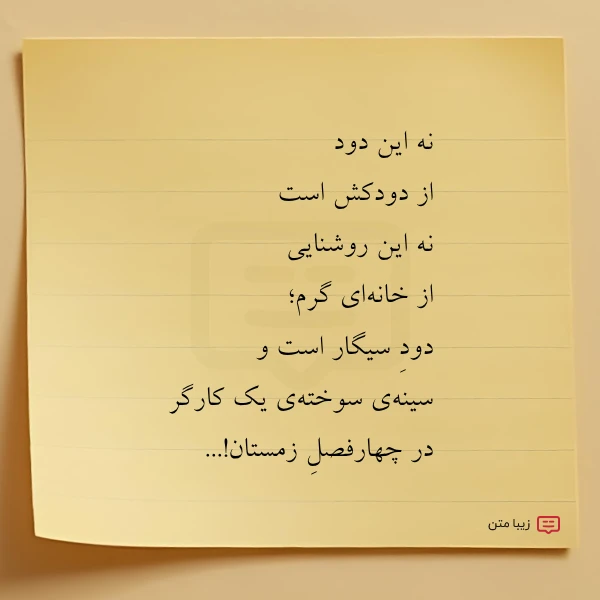 نه این دود
از دودکش است
نه این روشنایی
از خانه‌ای گرم؛
دودِ سیگار است و
سینه‌ی سوخته‌ی یک کارگر
در چهارفصلِ زمستان!...
زیبا متن